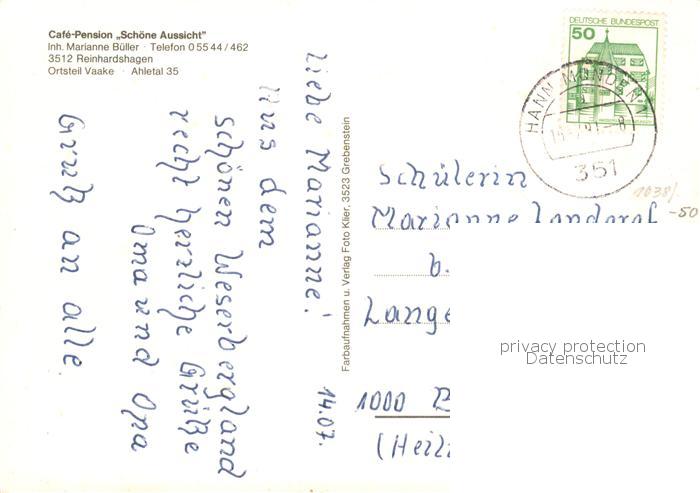 Café-Pension „Schöne Aussicht"
Inh. Marianne Büller · Telefon 0 55 44 / 462
3512 Reinhardshagen
Ortsteil Vaake · Ahletal 35
14.07.
Liebe Marianne!
Aus dem
schönen Weserbergland
recht herzliche Grüße
Oma und Opa
Gruß an alle
Farbaufnahmen u. Verlag Foto Klier, 3523 Grebenstein
DEUTSCHE BUNDESPOST
50
HANN MÜNDEN 1
351
1038/
-50
Schülerin
Marianne
b.
Lange
1000 B
(Heil
privacy protection
Datenschutz